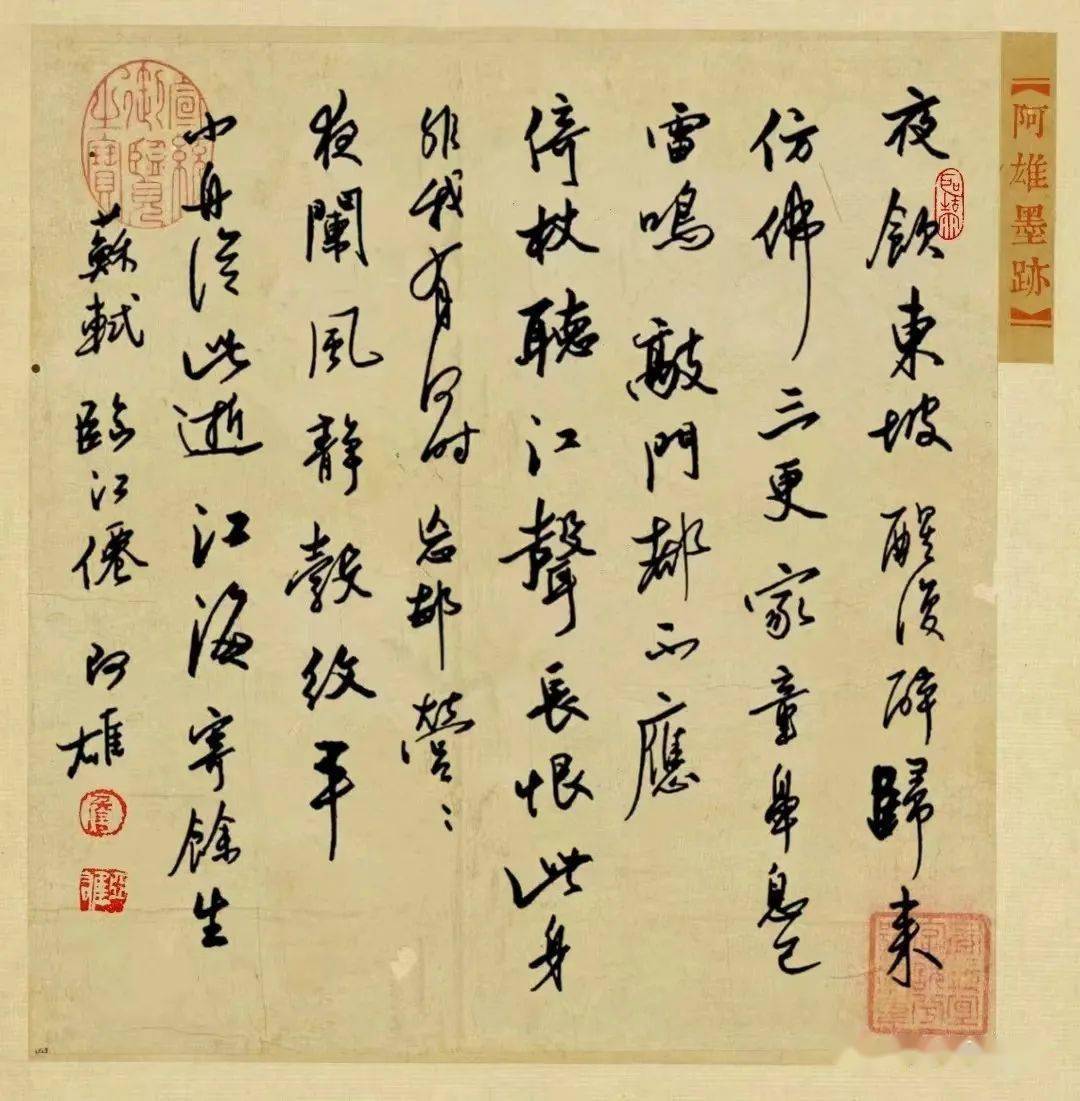 【阿雄墨跡】
夜飲東坡醒復醉歸来
仿佛三更家童鼻息已
雷鳴敲門都不應
倚杖聽江聲長恨此身
非我有何時忘却營〻
夜闌風靜縠紋平
小舟從此逝江海寄餘生
蘇軾臨江僊 阿雄
宣統御覽之寶